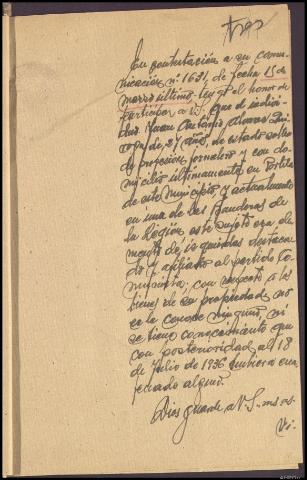 En contestación a su comu-
nicación nº 1631, de fecha 15 de
marzo último, tengo el honor de
participar a V.S. que el indivi-
duo Juan Antonio
de 37 años, de estado soltero
de profesion jornalero y con do-
micilio ultimamente en Portilla
de este municipio y actualmente
en una de las Banderas de
la Legión este sujeto era ele-
mento de izquierdas destaca-
do y afiliado al partido Co-
munista, con respecto a los
bienes de su propiedad no
se le conoce ninguno, ni
se tiene conocimiento que
con posterioridad al 18
de Julio de 1936 hubiera ena-
jenado alguno.
Dios guarde a V.S. ms as.
Vi-